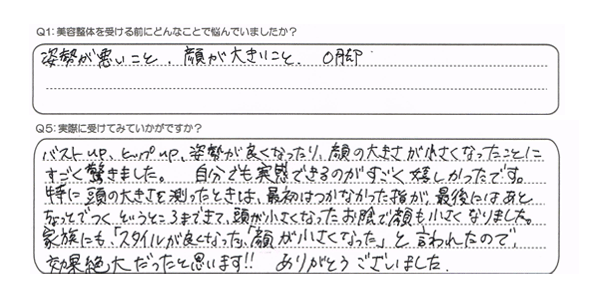 Q1：美容整体を受ける前にどんなことで悩んでいましたか？
姿勢が悪いこと、顔が大きいこと、O脚
Q5：実際に受けてみていかがですか？
バストup、ヒップup、姿勢が良くなったり、顔の大きさが小さくなったことに
すごく驚きました。 自分でも実感できるのがすごく嬉しかったです。
特に頭の大きさを測ったときは、最初はつかなかった指が、最後にはあと
ちょっとでつくというところまできて、頭が小さくなったお陰で顔も小さくなりました。
家族にも、「スタイルが良くなった」、「顔が小さくなった」と言われたので、
効果絶大だったと思います!! ありがとうございました。